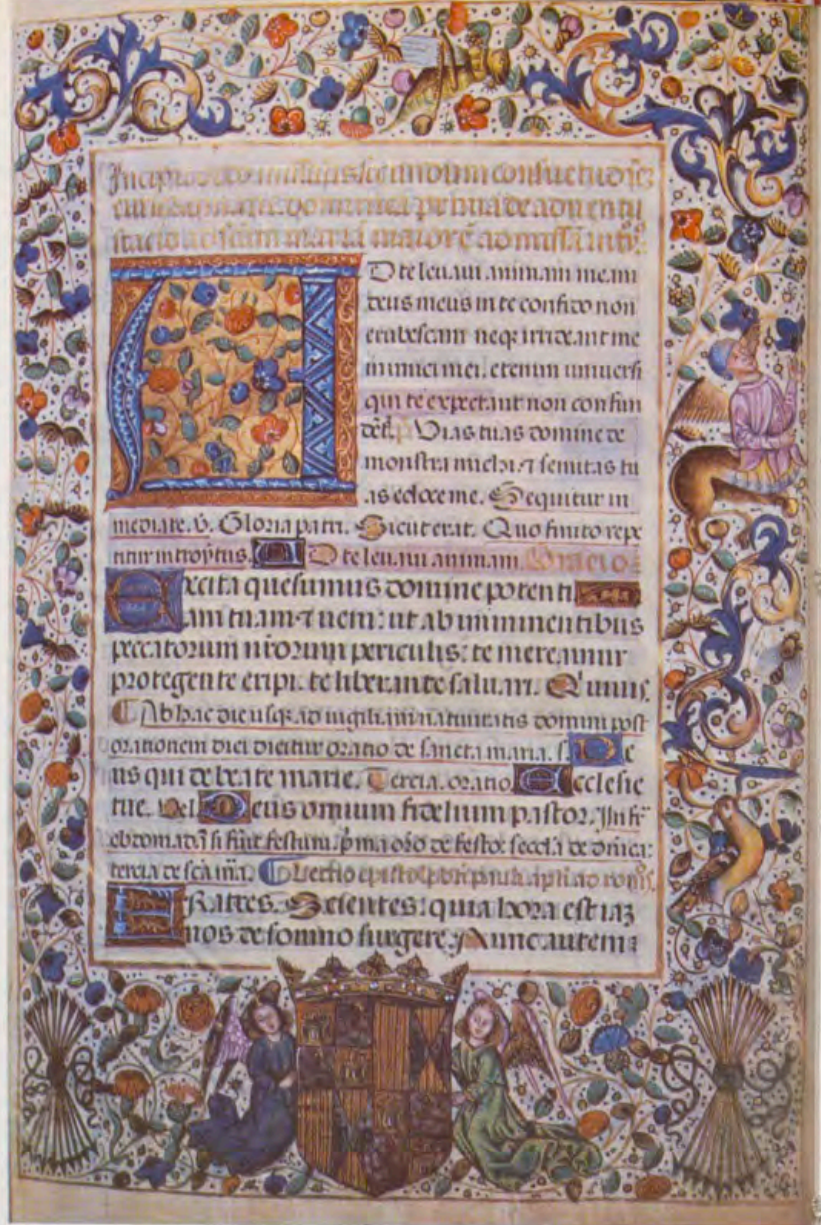 Incipit missalis secundum consuetudinē
curie dominica prima de aduentu
stacio ad sctam mariā maiorē ad missā introˢ
AD te leuaui animam meam
deus meus in te confido non
erubescam neqꝫ irrideant me
inimici mei. etenim uniuersi
qui te expectant non confun
dēt. Vias tuas domine de
monstra michi ⁊ semitas tu
as edoce me. Sequitur in
mediate. v̄. Gloria patri. Sicut erat. Quo finito repe
titur introytus. AD te leuaui animam. Oracio
Excita quesumus domine potenti
am tuam ⁊ ueni: ut ab imminentibus
peccatorum nr̄orum periculis: te mereamur
protegente eripi. te liberante saluari. Qui uiuis.
Ab hac die usqꝫ ad uigiliam natiuitatis domini post
orationem diei dicitur oratio de sancta maria. s. De
us qui de beate marie. Tercia. oratio Ecclesie
tue. Vel Deus omnium fidelium pastor. In fr̄
ebdomadā si fuit festum. p̄ma or̄o de festo: secd̄a de dn̄ica:
tercia de scā m̄a. Lectio epistole pauli apl̄i ad rom̄s.
FRatres. Scientes: quia hora est iaꝫ
nos de somno surgere. Nunc autem: